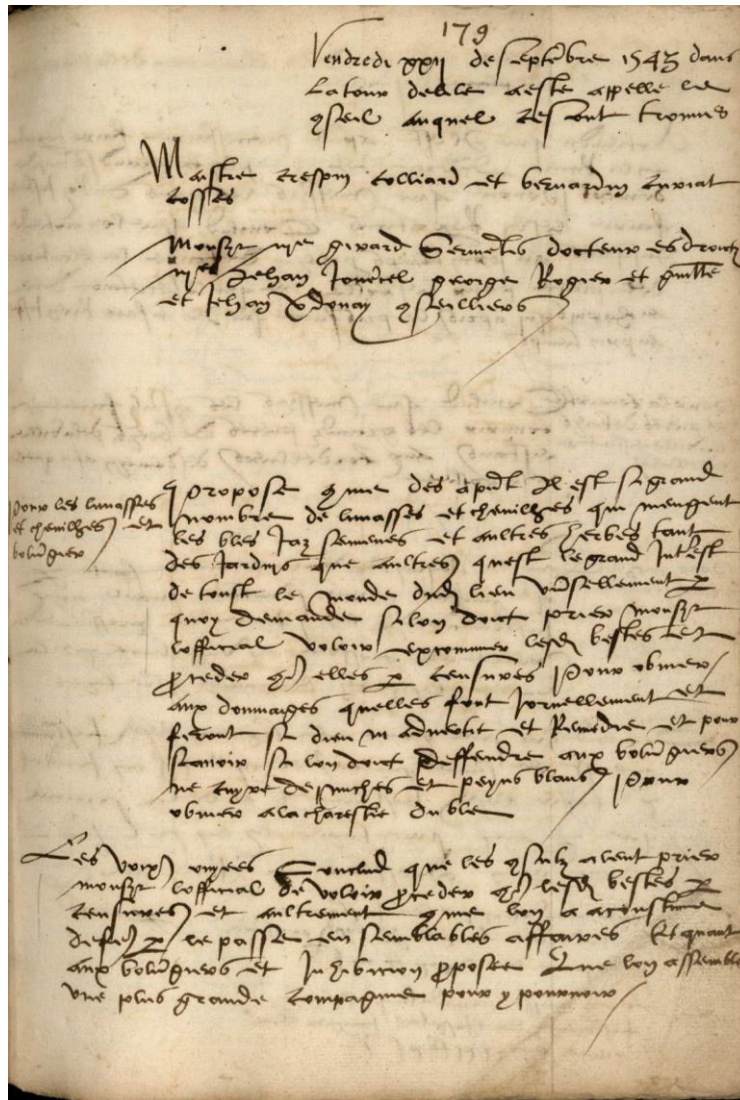 179
Vendredi xxij de septēbre 1543 dans
la tour delile a este appelle le
9seil auquel ce sont trouues
Maistre crespin colliard et bernardin
cosses
Monsr me girard docteur es droictz
me Jehan george Rogier et
et Jehan 9seilliers
Pour les limasses
et chenilhes et
bolūgier
Propose 9me des apnt Il est si grand
nombre de limasses et chenilhes qui mengent
les bles Jaz semenes et aultres herbes tant
des Jardins que aultres quest le grand Interest
de tout le monde dud lieu vūsellement p
quoy demande si lon doit prier monsr
lofficial voloir excommer lesd bestes et
proceder 9tre elles p censures pour obuier
aux dommaiges quelles font Jornellement et
feront si dieu ni aduertit et Remedie et pour
scauoir si lon doit deffendre aux bolūgiers
ne cuyre de miches et peyns blans pour
obuier a la charestie du ble
Les voix ouyees Conclud que les 9sulz alent prier
monsr lofficial de voloir proceder 9tre lesd bestes p
censures et aultrement 9me lon a acoustume
de p le passe en semblables affaires Et quant
aux bolūgiers et Inhibicion proposee Que lon assemble
vne plus grande compagnie pour y pourueoir